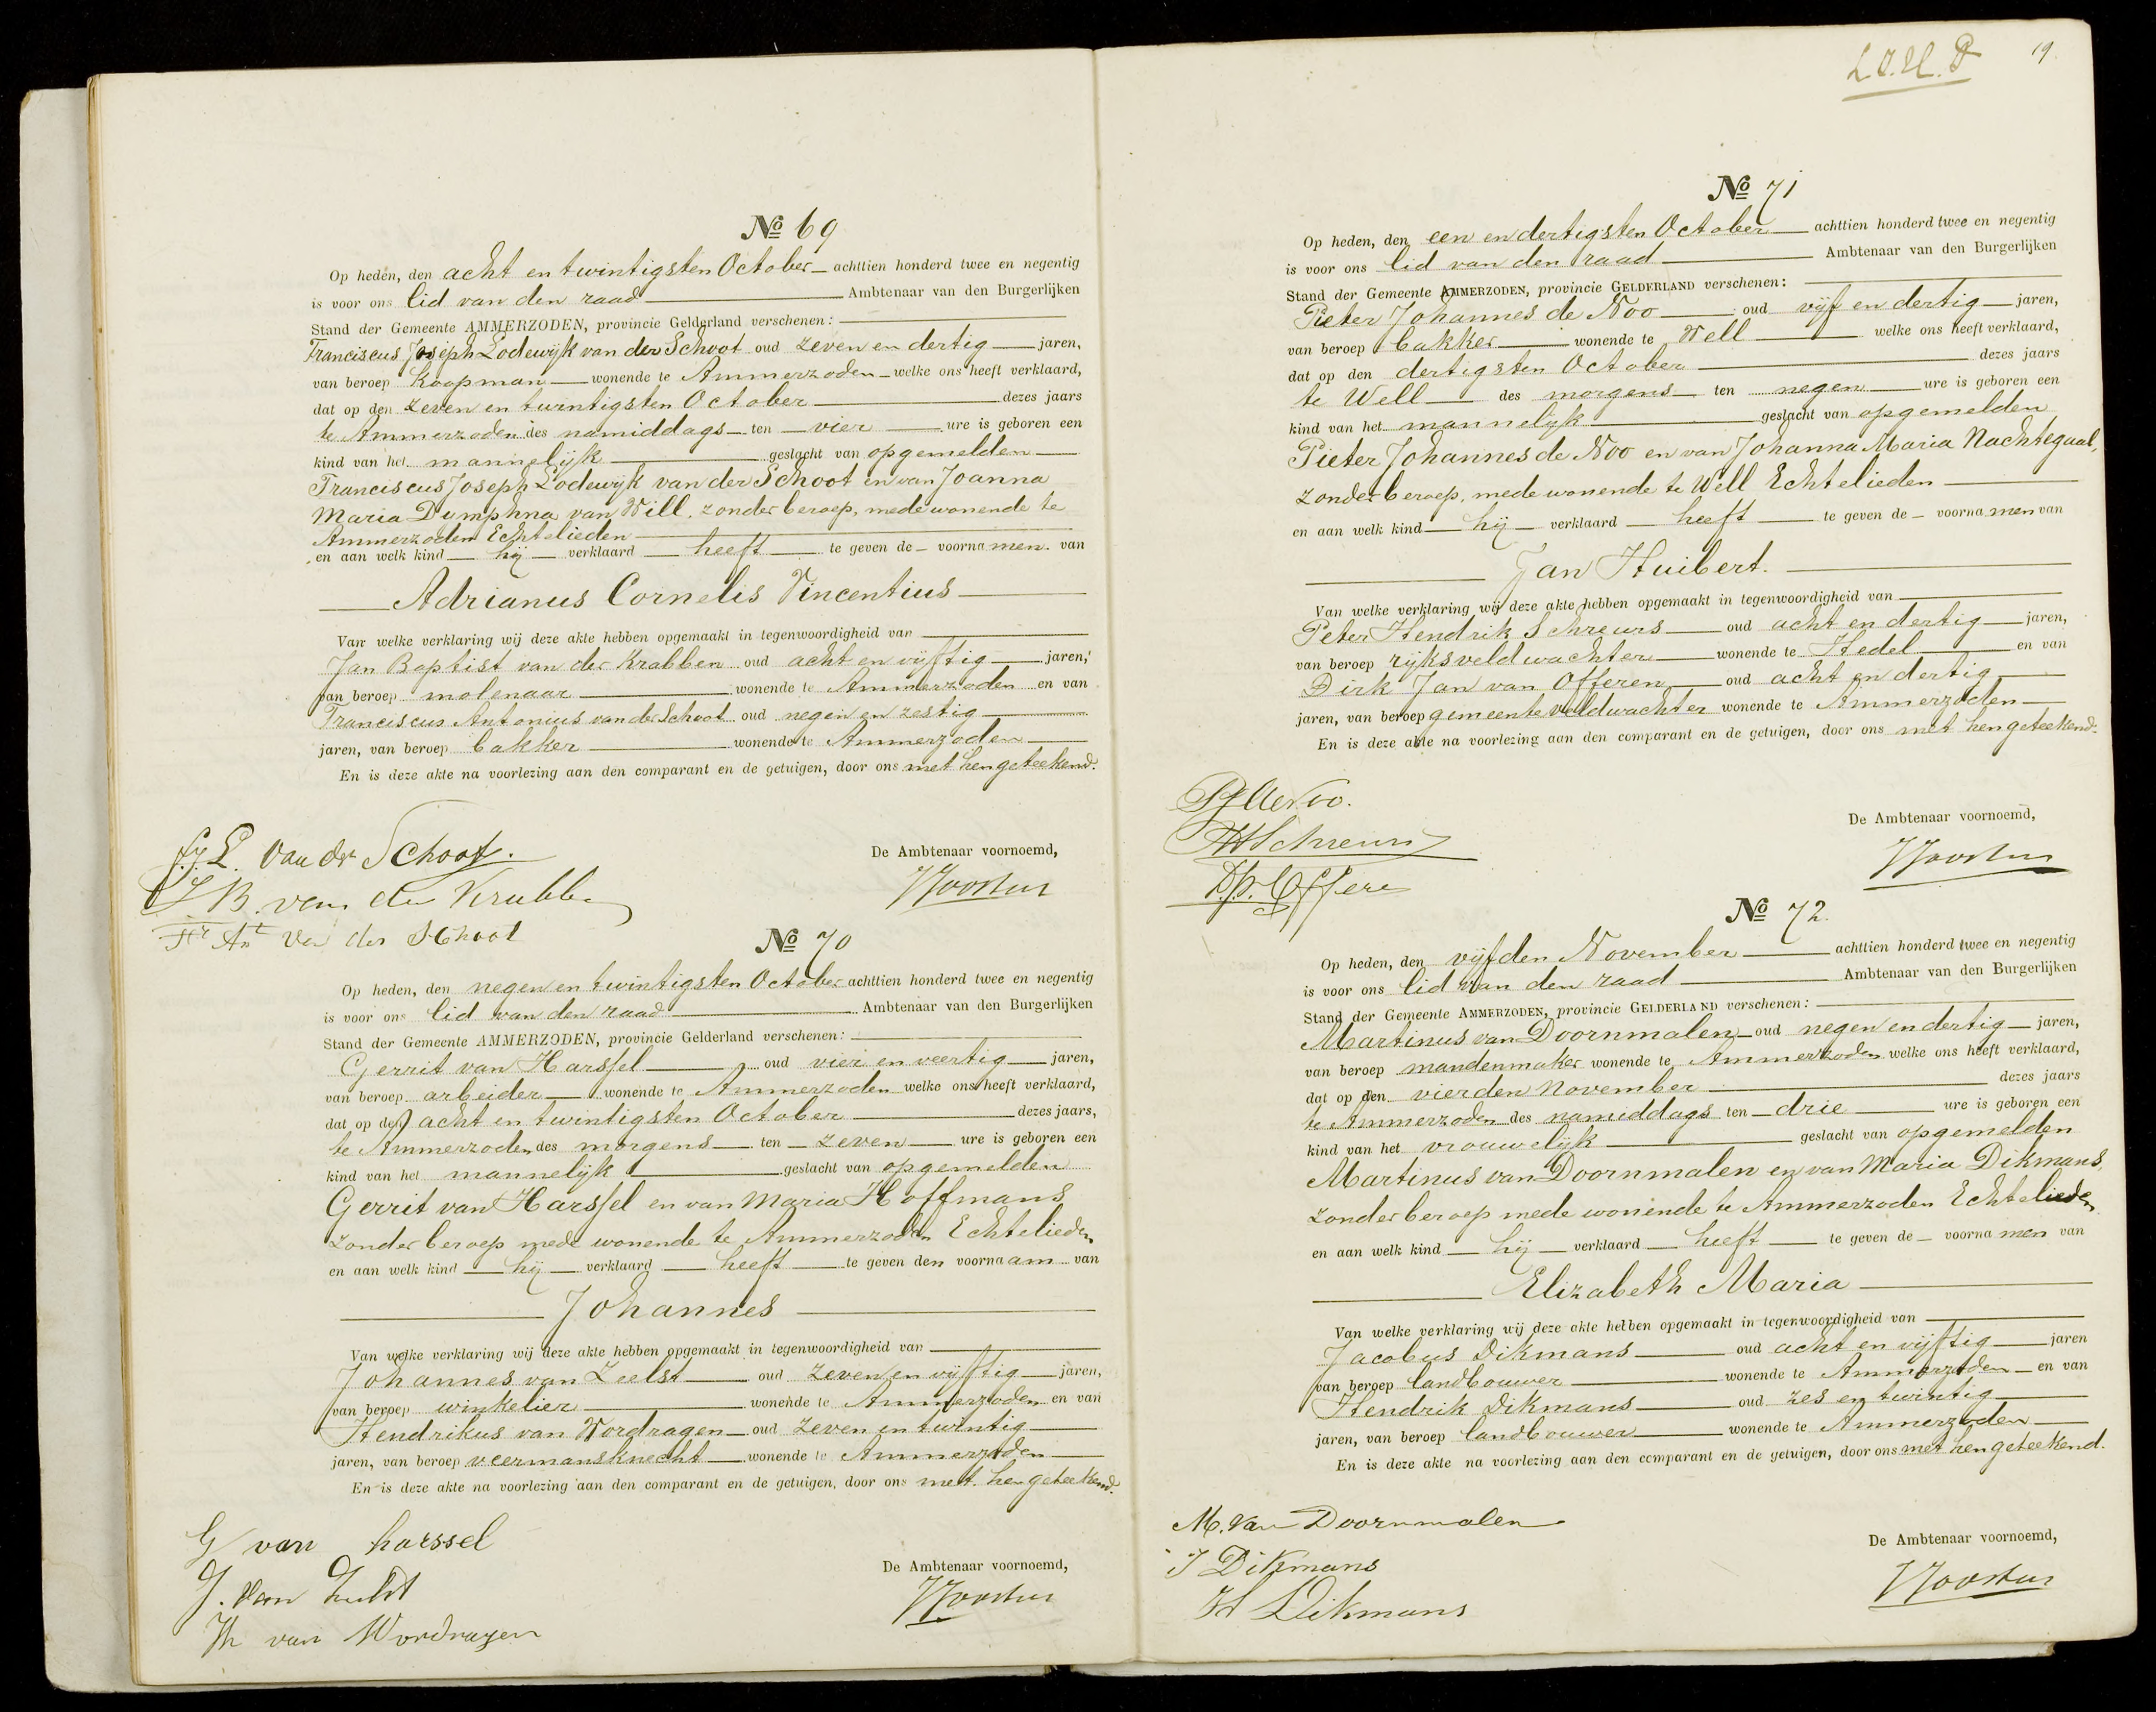 No 69
Op heden, den acht en twintigsten October achttien honderd twee en negentig
is voor ons lid van den raad Ambtenaar van den Burgerlijken
Stand der Gemeente AMMERZODEN, provincie Gelderland verschenen:
Franciscus Joseph Lodewijk van der Schoot oud zeven en dertig jaren,
van beroep koopman wonende te Ammerzoden welke ons heeft verklaard,
dat op den zeven en twintigsten October dezes jaars
te Ammerzoden des namiddags ten vier ure is geboren een
kind van het mannelijk geslacht van opgemelden
Franciscus Joseph Lodewijk van der Schoot en van Joanna
Maria Dumphna van Will, zonder beroep, mede wonende te
Ammerzoden Echtelieden
en aan welk kind hij verklaard heeft te geven de voornamen van
Adrianus Cornelis Vincentius
Van welke verklaring wij deze akte hebben opgemaakt in tegenwoordigheid van
Jan Baptist van der Krabben oud acht en vijftig jaren,
van beroep molenaar wonende te Ammerzoden en van
Franciscus Antonius van der Schoot oud negen en zestig
jaren, van beroep bakker wonende te Ammerzoden
En is deze akte na voorlezing aan den comparant en de getuigen, door ons met hen geteekend.
F.J.L. van der Schoot.
De Ambtenaar voornoemd,
J.B. van der Krabben
Fr Ant van der Schoot
No 70
Op heden, den negen en twintigsten October achttien honderd twee en negentig
is voor ons lid van den raad Ambtenaar van den Burgerlijken
Stand der Gemeente AMMERZODEN, provincie Gelderland verschenen:
Gerrit van Harssel oud vier en veertig jaren,
van beroep arbeider wonende te Ammerzoden welke ons heeft verklaard,
dat op den acht en twintigsten October dezes jaars,
te Ammerzoden des morgens ten zeven ure is geboren een
kind van het mannelijk geslacht van opgemelden
Gerrit van Harssel en van Maria Hoffmans
zonder beroep mede wonende te Ammerzoden Echtelieden
en aan welk kind hij verklaard heeft te geven den voornaam van
Johannes
Van welke verklaring wij deze akte hebben opgemaakt in tegenwoordigheid van
Johannes van Zeelst oud zeven en vijftig jaren,
van beroep winkelier wonende te Ammerzoden en van
Hendrikus van Wordragen oud zeven en twintig
jaren, van beroep veermansknecht wonende te Ammerzoden
En is deze akte na voorlezing aan den comparant en de getuigen, door ons met hen geteekend.
G van harssel
De Ambtenaar voornoemd,
J. van Zeelst
H van Wordragen
19
No 71
Op heden, den een en dertigsten October achttien honderd twee en negentig
is voor ons lid van den raad Ambtenaar van den Burgerlijken
Stand der Gemeente AMMERZODEN, provincie GELDERLAND verschenen:
Pieter Johannes de Noo oud vijf en dertig jaren,
van beroep bakker wonende te Well welke ons heeft verklaard,
dat op den dertigsten October dezes jaars
te Well des morgens ten negen ure is geboren een
kind van het mannelijk geslacht van opgemelden
Pieter Johannes de Noo en van Johanna Maria Nachtegaal,
zonder beroep, mede wonende te Well Echtelieden
en aan welk kind hij verklaard heeft te geven de voornamen van
Jan Huibert.
Van welke verklaring wij deze akte hebben opgemaakt in tegenwoordigheid van
Peter Hendrik Schreurs oud acht en dertig jaren,
van beroep rijksveldwachter wonende te Hedel en van
Dirk Jan van Offeren oud acht en dertig
jaren, van beroep gemeente veldwachter wonende te Ammerzoden
En is deze akte na voorlezing aan den comparant en de getuigen, door ons met hen geteekend.
PJ de Noo.
De Ambtenaar voornoemd,
PH Schreurs
No 72.
Op heden, den vijfden November achttien honderd twee en negentig
is voor ons lid van den raad Ambtenaar van den Burgerlijken
Stand der Gemeente AMMERZODEN, provincie GELDERLAND verschenen:
Martinus van Doornmalen oud negen en dertig jaren,
van beroep mandenmaker wonende te Ammerzoden welke ons heeft verklaard,
dat op den vierden November dezes jaars
te Ammerzoden des namiddags ten drie ure is geboren een
kind van het vrouwelijk geslacht van opgemelden
Martinus van Doornmalen en van Maria Dikmans,
zonder beroep mede wonende te Ammerzoden Echtelieden
en aan welk kind hij verklaard heeft te geven de voornamen van
Elizabeth Maria
Van welke verklaring wij deze akte hebben opgemaakt in tegenwoordigheid van
Jacobus Dikmans oud acht en vijftig jaren
van beroep landbouwer wonende te Ammerzoden en van
Hendrik Dikmans oud zes en twintig
jaren, van beroep landbouwer wonende te Ammerzoden
En is deze akte na voorlezing aan den comparant en de getuigen, door ons met hen geteekend.
M. van Doornmalen
De Ambtenaar voornoemd,
J Dikmans
H Dikmans